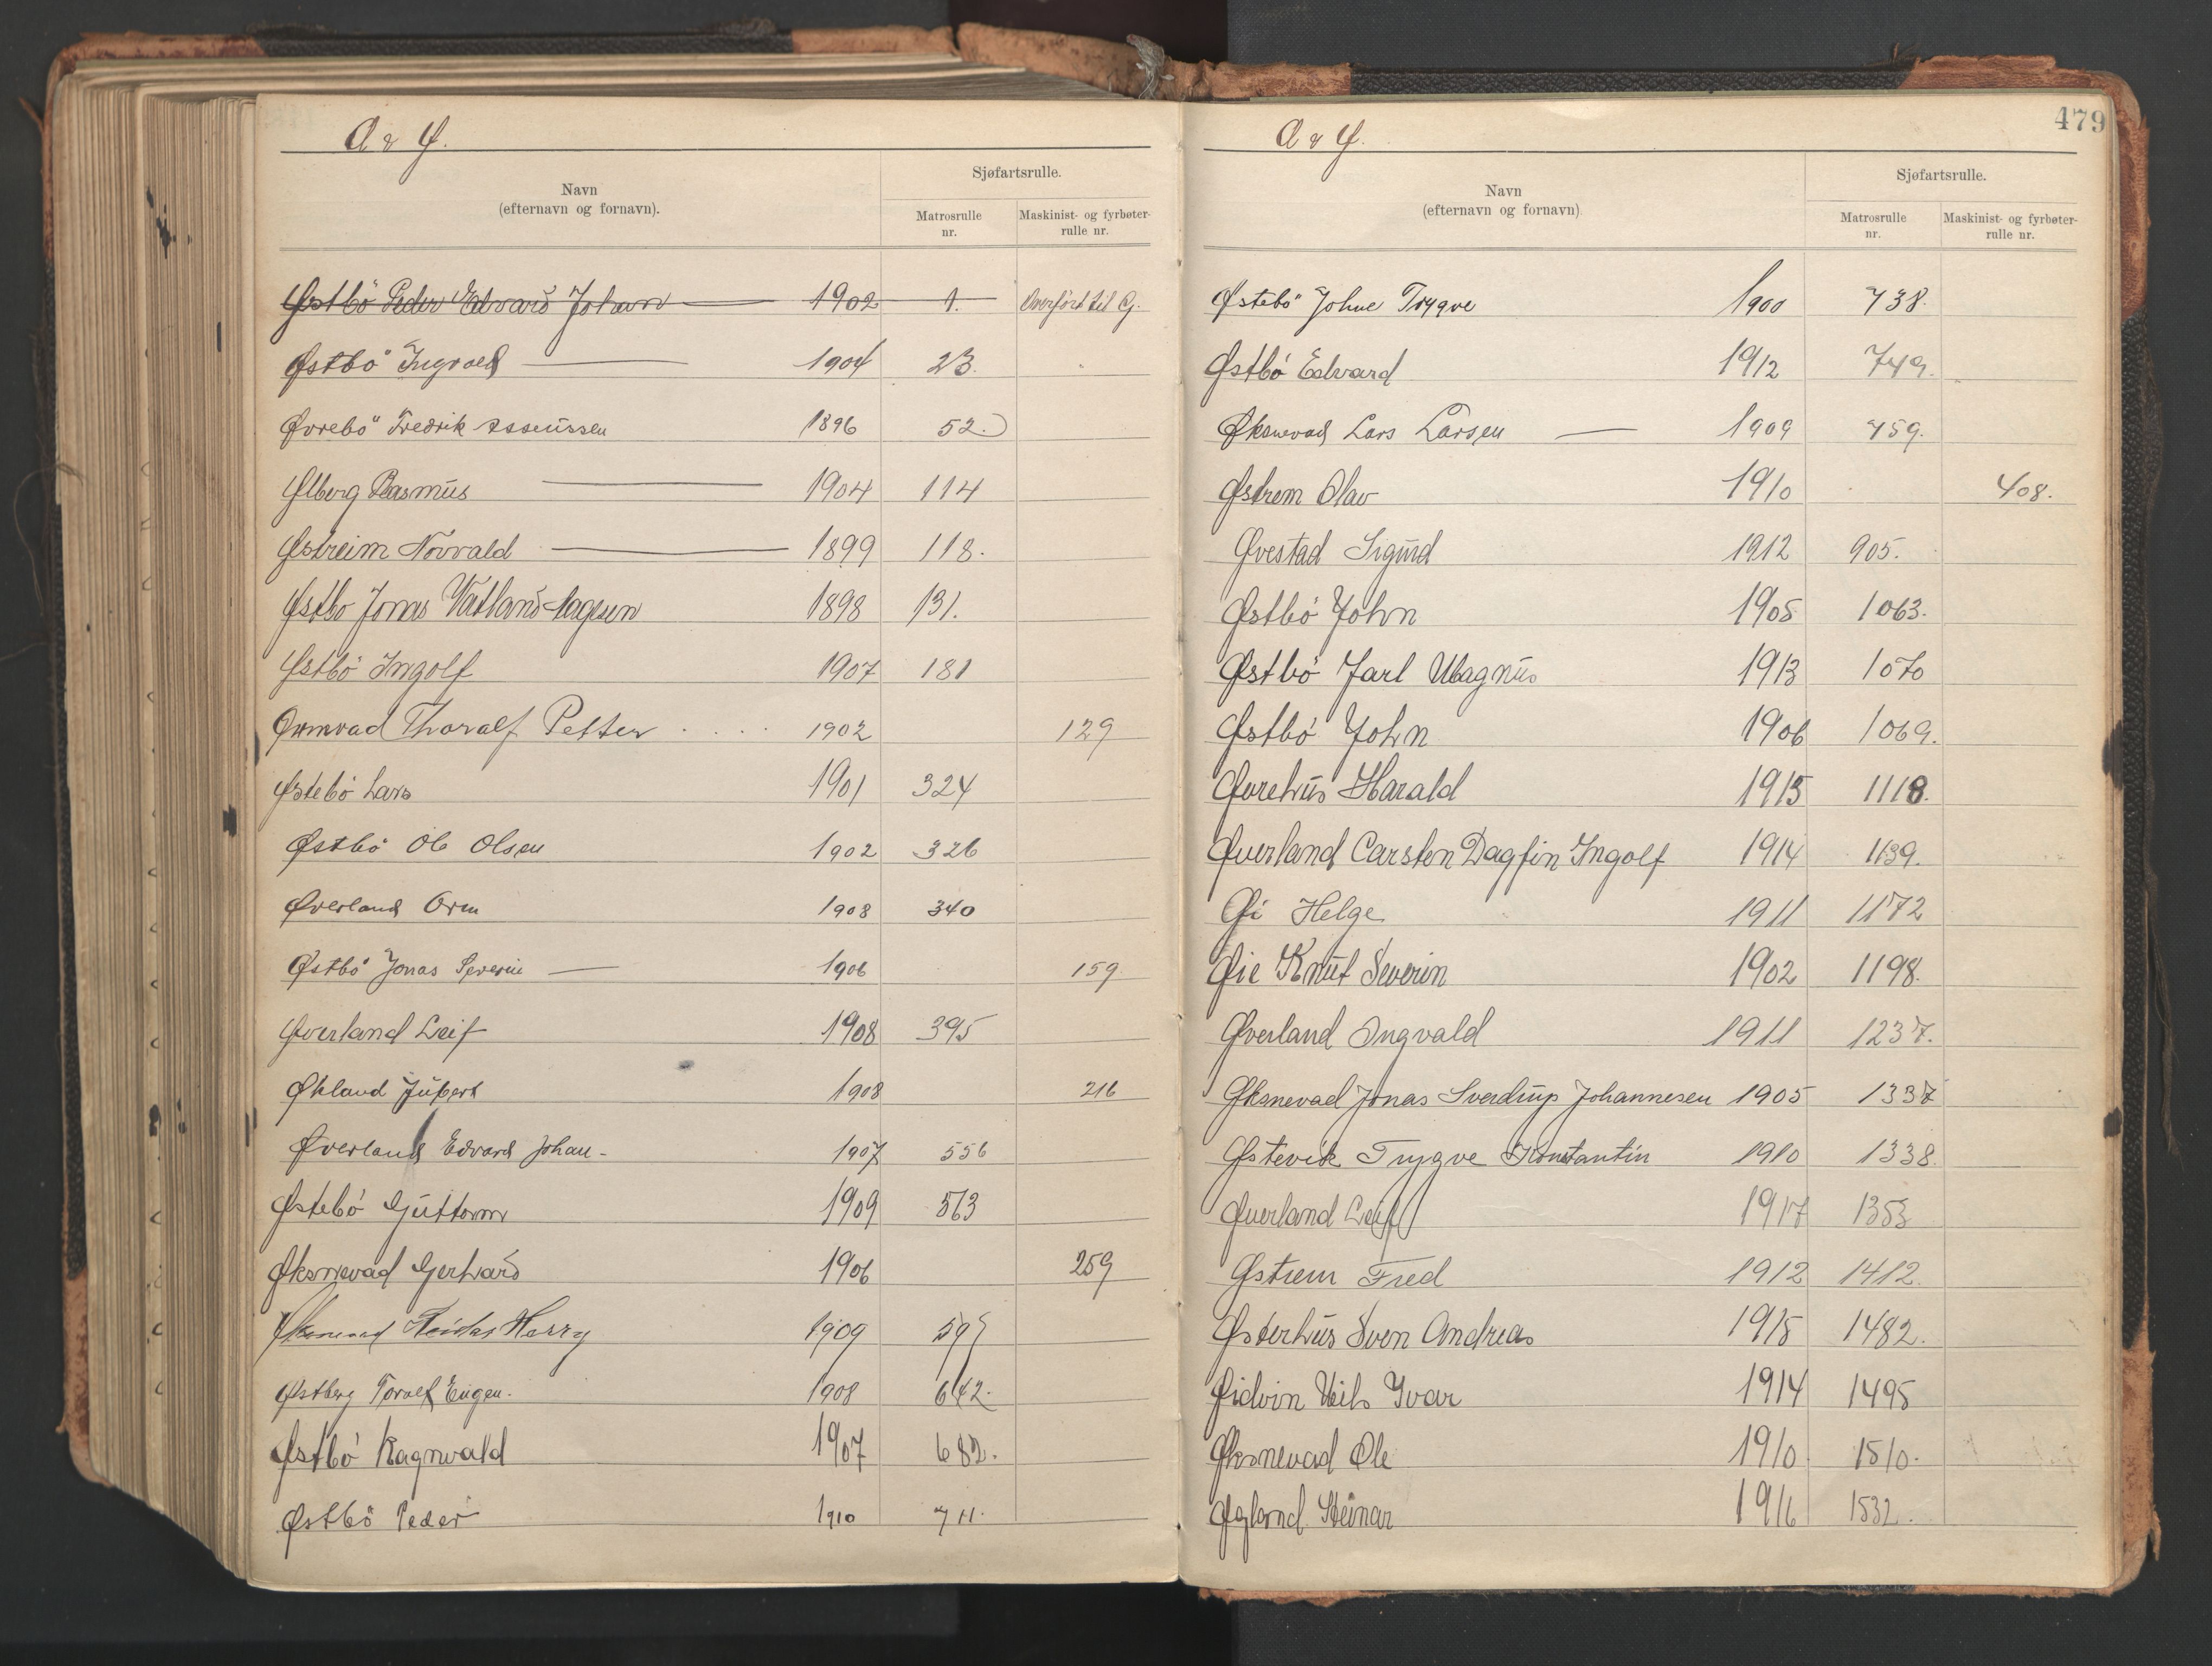 Q & Ø.
Sjøfartsrulle.
Navn
(efternavn og fornavn).
Matrosrulle
nr.
Maskinist- og fyrbøter-
rulle nr.
Østbö Peder Edvard Johan 1902 1. Overført til G.
Østbö Ingvald 1904 23.
Øvrebö Fredrik Assenssen 1896 52.
Ølberg Rasmus 1904 114
Østreim Norvald 1899 118.
Østbo Jonas Vatland Aagesen 1898 131.
Østbö Ingolf 1907 181
Ørmvad Thoralf Petter 1902 129
Østebö Lars 1901 324
Østbö Ole Olsen 1902 326
Øverland Orm 1908 340
Østbö Jonas Severin 1906 159
Øverland Leif 1908 395
Økland 1908 216
Øverland Edvard Johan - 1907 556
Østebö Guttorm 1909 563
Øksnevad Gerhard 1906 259
Øksnevad Reidar Harry 1909
Østberg Toralf Eugen. 1908 642.
Østbö Ragnvald 1907 682.
Østbö Peder 1910 711.
479
Q & Ø.
Sjøfartsrulle.
Navn
(efternavn og fornavn)
Matrosrulle
nr.
Maskinist- og fyrbøter-
rulle nr.
Østebö Johne Trygve 1900 738.
Østbö Edvard 1912 749.
Øksnevad Lars Larsen 1909 759.
Østrem Olav 1910 408.
Øvestad Sigurd 1912 905.
Østbö John 1905 1063.
Østbö Jarl Magnus 1913 1070
Østbö John 1906 1069.
Øvrehus Harald 1915 1118.
Øverland Carsten Dagfin Ingolf 1914 1139.
Øi Helge 1911 1172
Øie Knut Severin 1902 1198.
Øverland Ingvald 1911 1237.
Øksnevad Jonas Sverdrup Johannesen 1905 1337
Østevik Trygve Konstantin 1910 1338.
Øverland Leif 1917 1353
Østrem Fred 1912 1412.
Østerhus Sven Andreas 1915 1482.
Øidvin Nils Ivar 1914 1495
Øksnevad Ole 1910 1510.
Øgland Steinar 1916 1532.